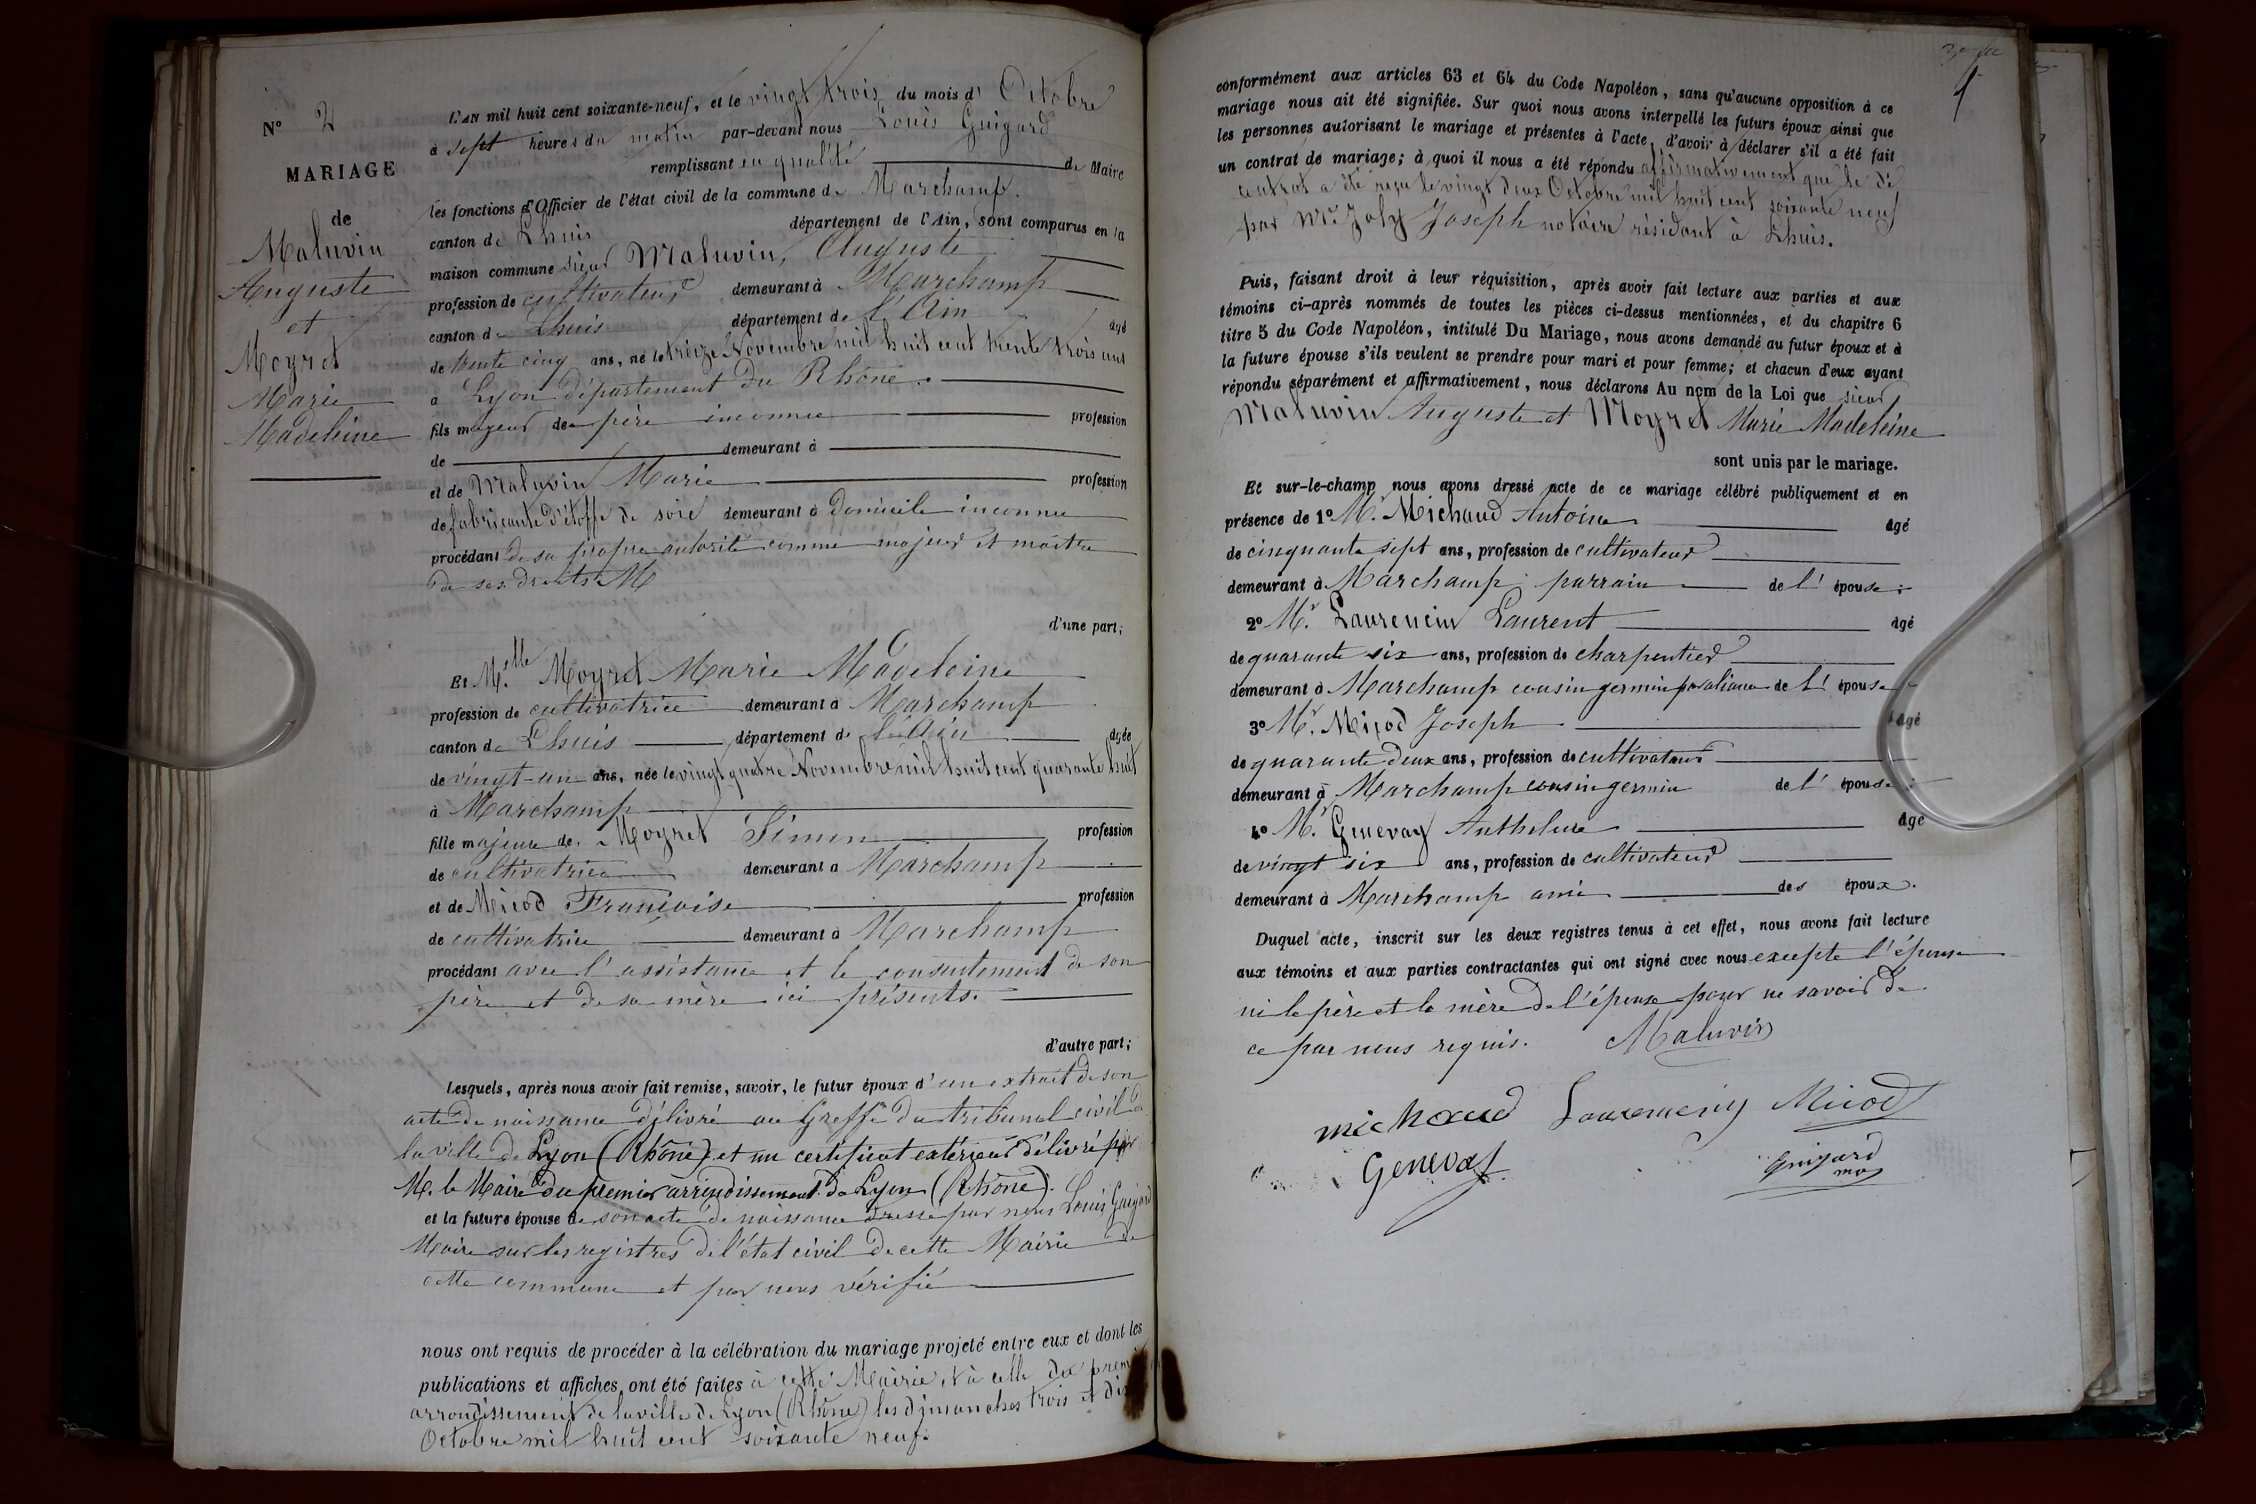 N° 2
MARIAGE
de
Maluvin
Auguste
et
Moyret
Marie
Madeleine
L'AN mil huit cent soixante-neuf, et le vingt trois du mois d' Octobre
à sept heures du matin par-devant nous Louis Guigard
remplissant en qualité de Maire
les fonctions d'Officier de l'état civil de la commune de Marchamp.
canton de Lhuis département de l'Ain, sont comparus en la
maison commune sieur Maluvin, Auguste
profession de cultivateur demeurant à Marchamp
canton de Lhuis département de l'Ain âgé
de trente cinq ans, né le treize Novembre mil huit cent trente trois
à Lyon département du Rhône.
fils majeur de père inconnu profession
de demeurant à
et de Maluvin Marie profession
de fabricante d'étoffe de soie demeurant à domicile inconnu
procédant de sa propre autorité comme majeur et maître
de ses droits
d'une part;
Et M.elle Moyret Marie Madeleine
profession de cultivatrice demeurant à Marchamp
canton de Lhuis département de l'Ain âgée
de vingt-un ans, née le vingt quatre Novembre mil huit cent quarante huit
à Marchamp
fille majeure de Moyret Simon profession
de cultivatrice demeurant à Marchamp
et de Micod Françoise profession
de cultivatrice demeurant à Marchamp
procédant avec l'assistance et le consentement de son
père et de sa mère ici présents.
d'autre part;
Lesquels, après nous avoir fait remise, savoir, le futur époux d'un extrait de son
acte de naissance délivré au Greffe du tribunal civil de
la ville de Lyon (Rhône) et un certificat extérieur délivré par
M. le Maire du premier arrondissement de Lyon (Rhône).
et la future épouse de son acte de naissance dressé par nous Louis Guigard
Maire sur les registres de l'état civil de cette Mairie de
cette commune et par nous vérifié
nous ont requis de procéder à la célébration du mariage projeté entre eux et dont les
publications et affiches ont été faites à cette Mairie et à celle du premier
arrondissement de la ville de Lyon (Rhône) les dimanches trois et dix
Octobre mil huit cent soixante neuf.
conformément aux articles 63 et 64 du Code Napoléon, sans qu'aucune opposition à ce
mariage nous ait été signifiée. Sur quoi nous avons interpellé les futurs époux ainsi que
les personnes autorisant le mariage et présentes à l'acte, d'avoir à déclarer s'il a été fait
un contrat de mariage; à quoi il nous a été répondu affirmativement que le dé
contrat a été reçu le vingt deux Octobre mil huit cent soixante neuf
par Mre Joly Joseph notaire résidant à Lhuis.
Puis, faisant droit à leur réquisition, après avoir fait lecture aux parties et aux
témoins ci-après nommés de toutes les pièces ci-dessus mentionnées, et du chapitre 6
titre 5 du Code Napoléon, intitulé Du Mariage, nous avons demandé au futur époux et à
la future épouse s'ils veulent se prendre pour mari et pour femme; et chacun d'eux ayant
répondu séparément et affirmativement, nous déclarons Au nom de la Loi que sieur
Maluvin Auguste et Moyret Marie Madeleine
sont unis par le mariage.
Et sur-le-champ nous avons dressé acte de ce mariage célébré publiquement et en
présence de 1° M.r Michaud Antoine âgé
de cinquante sept ans, profession de cultivateur
demeurant à Marchamp parrain de l' épouse;
2° M.r Laurencin Laurent âgé
de quarante six ans, profession de charpentier
demeurant à Marchamp cousin germin de l' épouse
3° M.r Micod Joseph âgé
de quarante deux ans, profession de cultivateur
demeurant à Marchamp cousin germin de l' épouse;
4° M.r Genevay Anthelme âgé
de vingt six ans, profession de cultivateur
demeurant à Marchamp ami des époux.
Duquel acte, inscrit sur les deux registres tenus à cet effet, nous avons fait lecture
aux témoins et aux parties contractantes qui ont signé avec nous excepte l'épouse
ni le père et la mère de l'épouse pour ne savoir de
ce par nous requis. Maluvin
michaud Laurencin Micod
Genevay Guigard